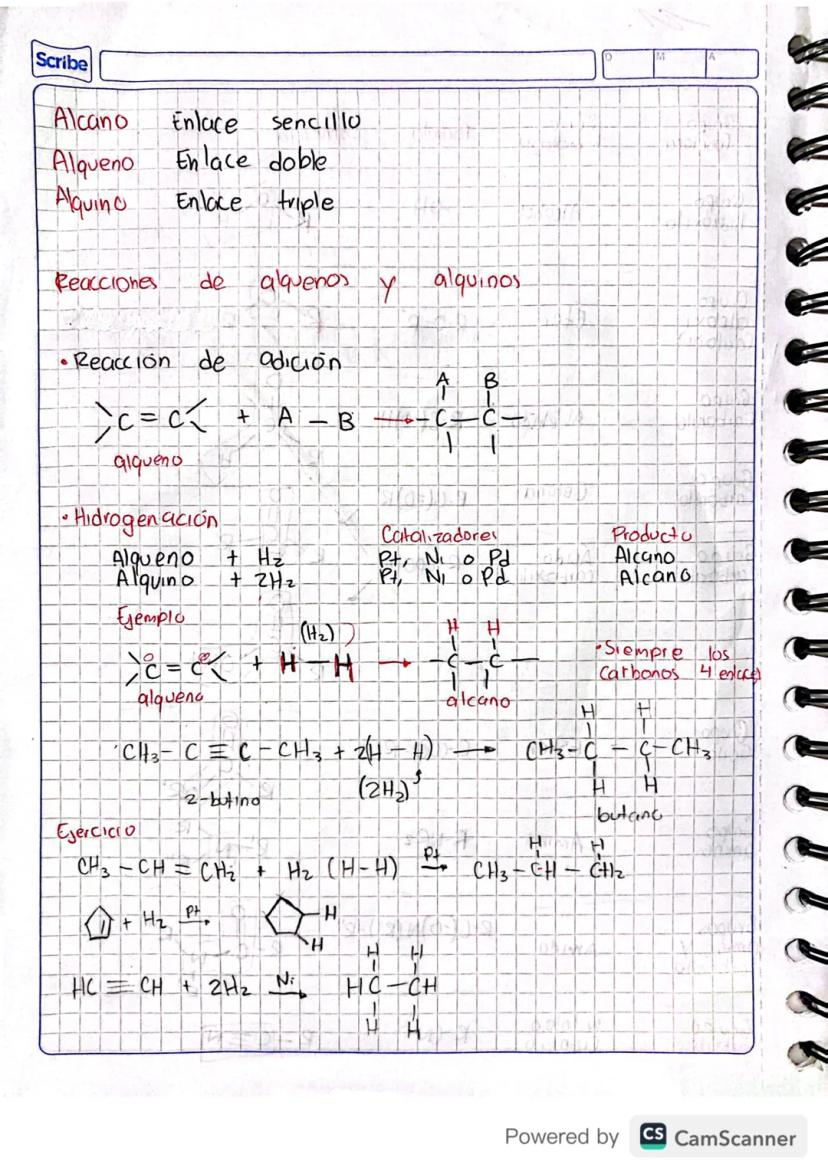 Scribe
D M A
Alcano Enlace sencillo
Alqueno Enlace doble
Alquino Enlace triple
Reacciones de alquenos y alquinos
• Reacción de adición
A B
C = C + A — B → C — C —
alqueno
• Hidrogenación
Catalizadores Producto
Alqueno + H2 Pt, Ni o Pd Alcano
Alquino + 2H2 Pt, Ni o Pd Alcano
Ejemplo
(H2) H H
C = C + H — H → — C — C —
• Siempre los
carbonos 4 enlaces
alqueno alcano
H H
CH3 – C ≡ C – CH3 + 2(H – H) → CH3 – C – C – CH3
(2H2) H H
2-butino butano
Ejercicio
H H
CH3 – CH = CH2 + H2 (H – H) Pt → CH3 – CH – CH2
+ H2 Pt → H
H
H H
HC ≡ CH + 2H2 Ni → HC – CH
H H
Powered by CS CamScanner